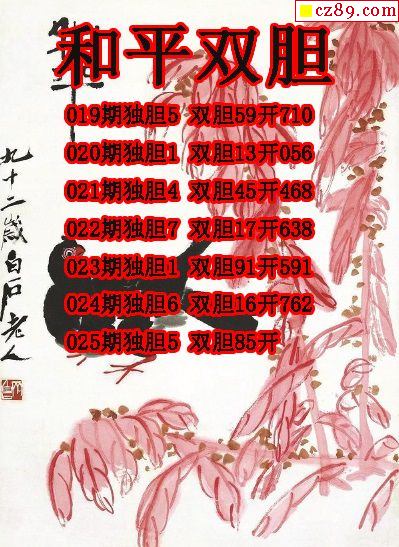 cz89.com
和平双胆
019期独胆5 双胆59开710
020期独胆1 双胆13开056
021期独胆4 双胆45开468
022期独胆7 双胆17开638
023期独胆1 双胆91开591
024期独胆6 双胆16开762
025期独胆5 双胆85开
九十二岁白石老人